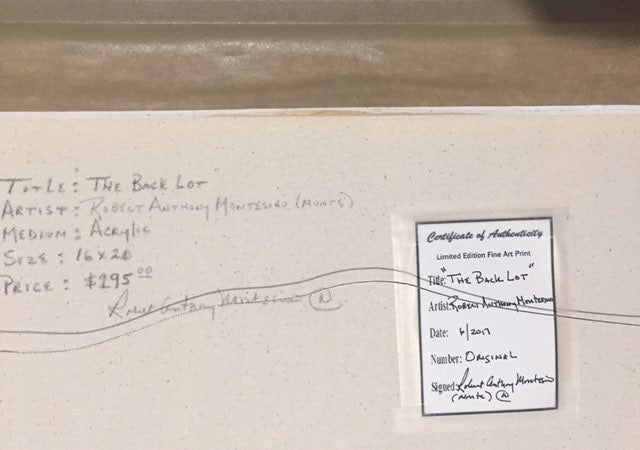 TITLE: THE BACK LOT
ARTIST: ROBERT ANTHONY MONTESINO (MONTE)
MEDIUM: ACRYLIC
SIZE: 16x20
PRICE: $295.00
Robert Anthony Montesino
Certificate of Authenticity
Limited Edition Fine Art Print
Title: "THE BACK LOT"
Artist: ROBERT ANTHONY MONTESINO
Date: 6/2017
Number: ORIGINAL
Signed: Robert Anthony Montesino
(MONTE)